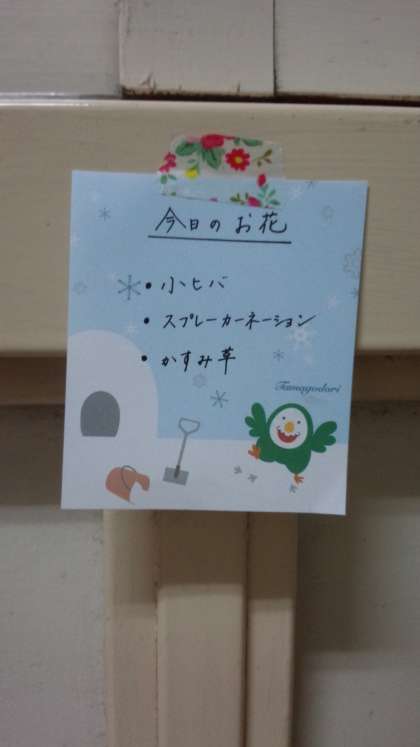 今日のお花
• 小ヒバ
• スプレーカーネーション
• かすみ草
Tamagodori